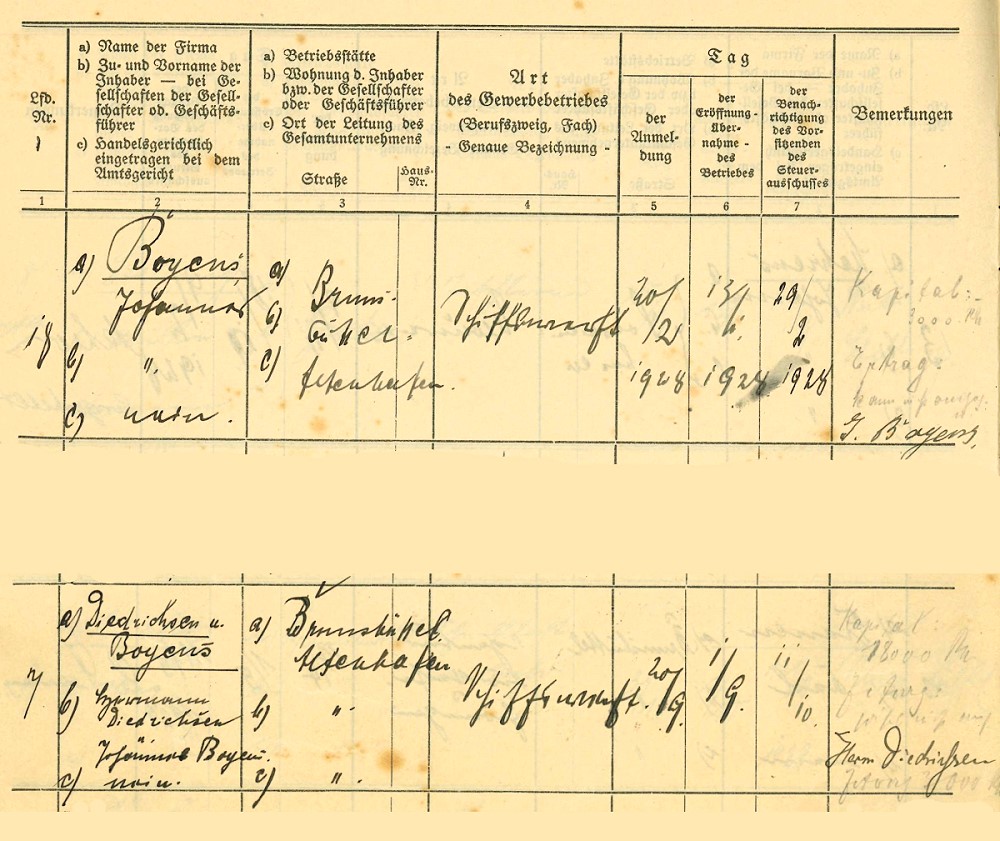 Lfd. Nr.
a) Name der Firma
b) Zu- und Vorname der
Inhaber — bei Ge-
sellschaften der Gesell-
schafter od. Geschäfts-
führer
c) Handelsgerichtlich
eingetragen bei dem
Amtsgericht
a) Betriebsstätte
b) Wohnung d. Inhaber
bzw. der Gesellschafter
oder Geschäftsführer
c) Ort der Leitung des
Gesamtunternehmens
Straße
Haus-
Nr.
Art
des Gewerbebetriebes
(Berufszweig, Fach)
- Genaue Bezeichnung -
Tag
der
Anmel-
dung
der
Eröffnung -
über-
nahme -
des
Betriebes
der
Benach-
richtigung
des Vor-
sitzenden
des
Steuer-
ausschusses
Bemerkungen
1 2 3 4 5 6 7
18
a) Boyens
Johannes
b) "
c) nein.
a) Bruns-
b) büttel.
c) Altenhafen.
Schiffswerft
20/2
1928
1928
29/2
1928
Kapital:
3000 Rk
Ertrag:
J. Boyens
7
a) Diedrichsen u.
Boyens
b) Hermann
Diedrichsen
Johannes Boyens.
c) nein.
a) Brunsbüttel.
Altenhafen
b) "
c) "
Schiffswerft.
20/9.
1/9.
11/10.
Kapital:
18000 Rk
Herm Diedrichsen